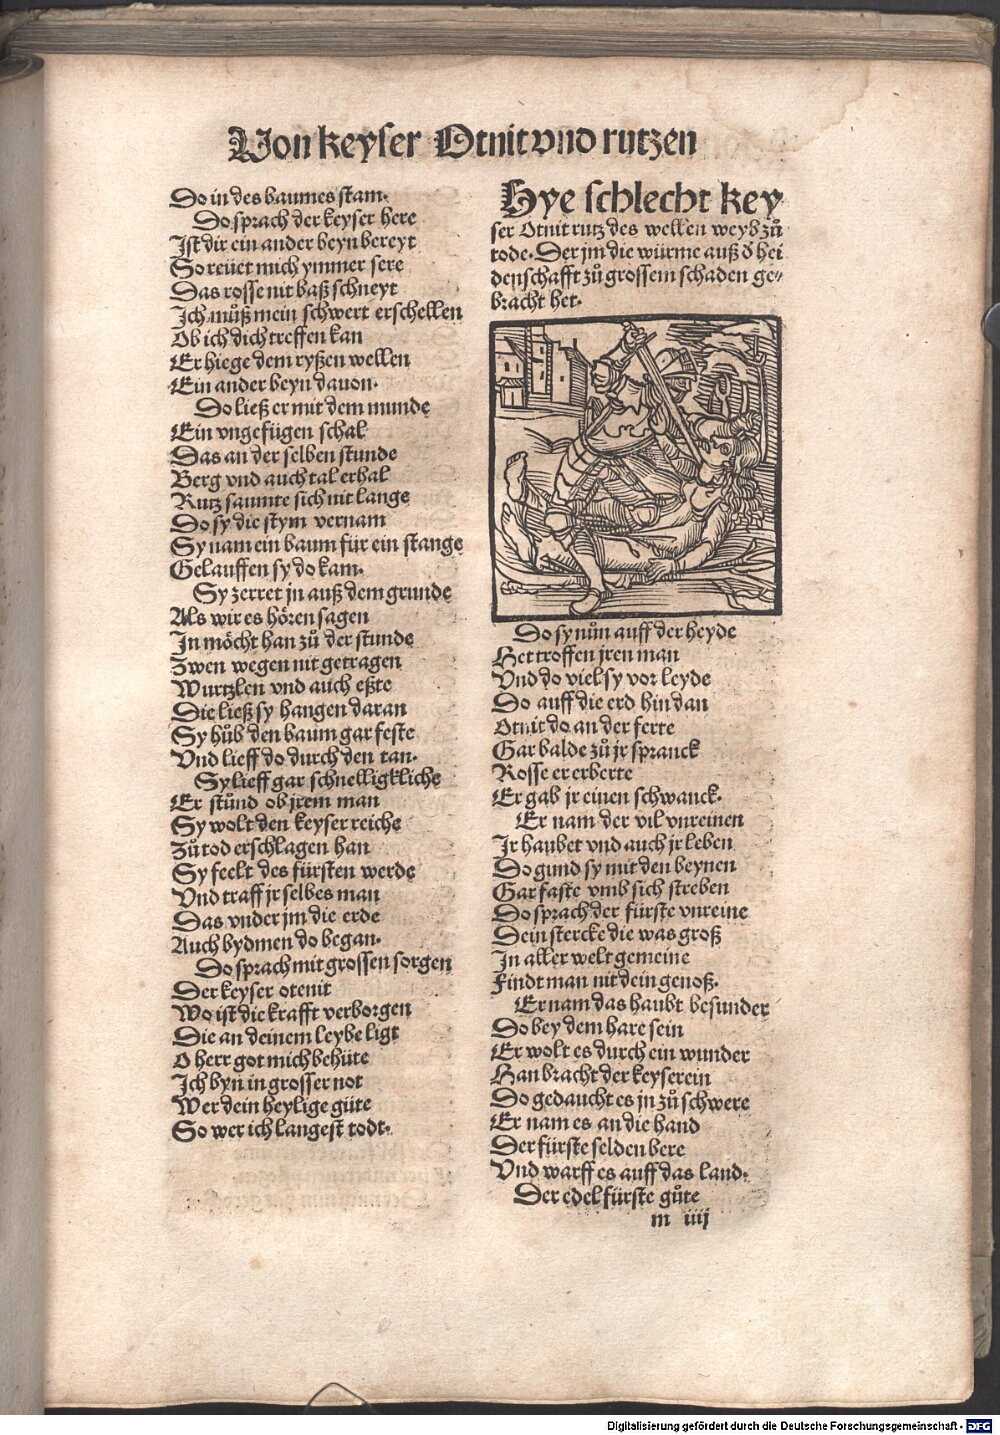 Von keyser Otnit vnd rutzen
Do in des baumes stam.
Do sprach der keyser here
Ist dir ein ander beyn bereyt
So reüet mich ymmer sere
Das rosse nit baß schneyt
Ich můß mein schwert erschellen
Ob ich dich treffen kan
Er hiege dem ryßen wellen
Ein ander beyn dauon.
Do ließ er mit dem munde
Ein vngefügen schal
Das an der selben stunde
Berg vnd auch tal erhal
Rutz saumte sich nit lange
Do sy die stym vernam
Sy nam ein baum für ein stange
Gelauffen sy do kam.
Sy zerret jn auß dem grunde
Als wir es hören sagen
In möcht han zů der stunde
Zwen wegen nit getragen
Wurtzlen vnd auch eßte
Die ließ sy hangen daran
Sy hůb den baum gar feste
Vnd lieff do durch den tan.
Sy lieff gar schnelligkliche
Er stůnd ob jrem man
Sy wolt den keyser reiche
Zů tod erschlagen han
Sy feelt des fürsten werde
Vnd traff jr selbes man
Das vnder jm die erde
Auch bydmen do began.
Do sprach mit grossen sorgen
Der keyser otenit
Wo ist die krafft verborgen
Die an deinem leybe ligt
O herr got mich behüte
Ich byn in grosser not
Wer dein heylige güte
So wer ich langest todt.
Hye schlecht key
ser Otnit rutz des wellen weyb zů
tode. Der jm die würme auß d̄ hei
denschafft zů grossem schaden ge-
bracht het.
Do sy nůn auff der heyde
Het troffen jren man
Vnd do viel sy vor leyde
Do auff die erd hin dan
Otnit do an der ferte
Gar balde zů jr spranck
Rosse er erberte
Er gab jr einen schwanck.
Er nam der vil vnreinen
Ir haubet vnd auch jr leben
Do gund sy mit den beynen
Gar faste vmb sich streben
Do sprach der fürste vnreine
Dein stercke die was groß
In aller welt gemeine
Findt man nit dein genoß.
Er nam das haubt besunder
Do bey dem hare sein
Er wolt es durch ein wunder
Han bracht der keyserein
Do gedaucht es jn zů schwere
Er nam es an die hand
Der fürste selden bere
Vnd warff es auff das land.
Der edel fürste gůte
m iiij
Digitalisierung gefördert durch die Deutsche Forschungsgemeinschaft - DFG